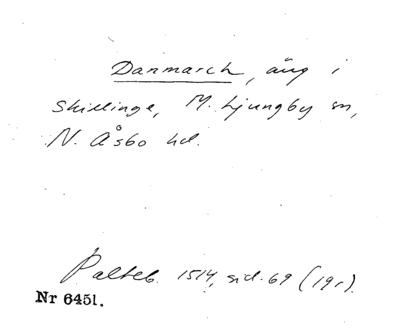 Danmarch, äng i
Skillinge, M. Ljungby sn,
N. Åsbo hd.
Palteb. 1514, sid. 69 (19r).
Nr 6451.